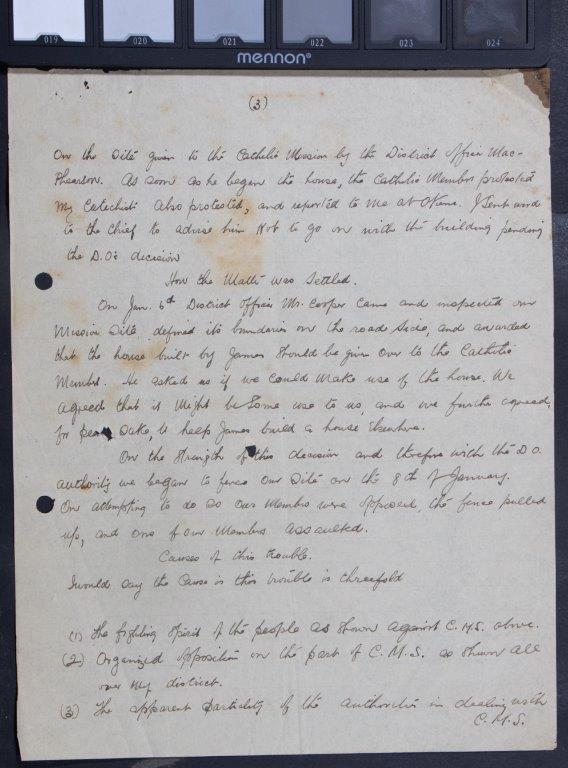 019 020 021 022 023 024
mennon®
(3)
On the site given to the Catholic Mission by the District Officer Mac-
Phearson. As soon as he began the house, the Catholic Members protested
My Catechist also protested, and reported to me at Okene. I sent word
to the Chief to advise him not to go on with the building pending
the D.O's decision
How the Matter was Settled.
On Jan. 6th District Officer Mr. Cooper came and inspected our
Mission Site, defined its boundaries on the road side, and awarded
that the house built by James should be given over to the Catholic
Members. He asked us if we could make use of the house. We
agreed that it might be some use to us, and we further agreed,
for peace sake, to help James build a house elsewhere.
On the strength of this decision and therefore with the D.O.
authority we began to fence our site on the 8th of January.
On attempting to do so our Members were opposed, the fence pulled
up, and one of our Members assaulted.
Causes of this trouble.
I would say the cause is this trouble is threefold
(1) The fighting spirit of the people as shown against C.M.S. above.
(2) Organized opposition on the part of C.M.S. as shown all
over my district.
(3) The apparent partiality of the authorities in dealing with
C.M.S.